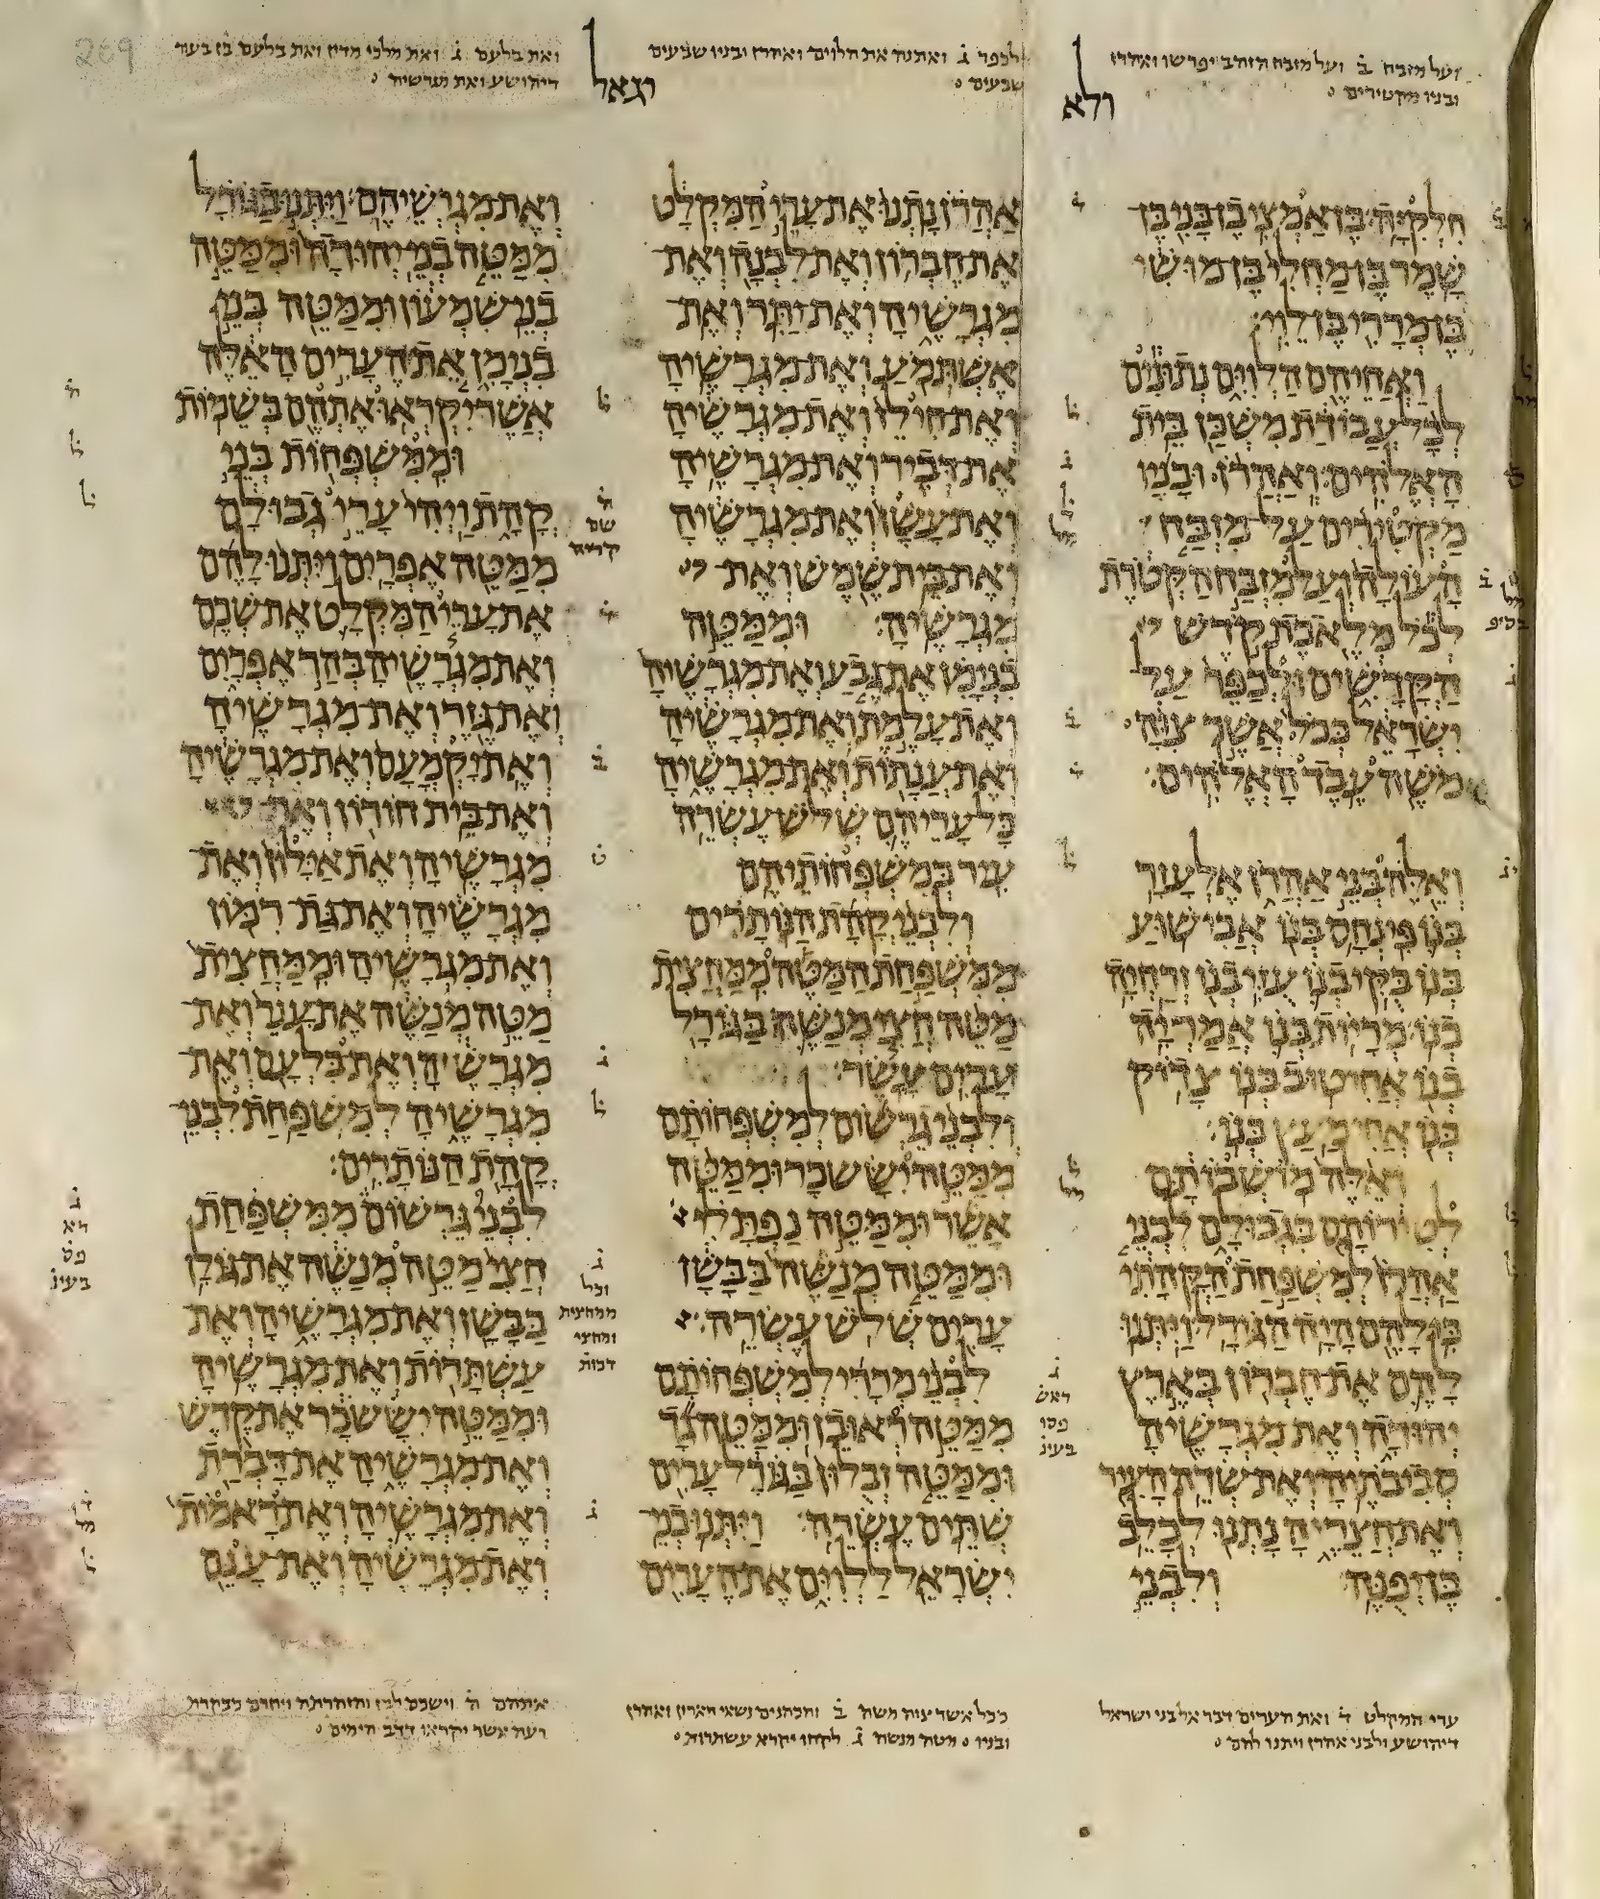 ועל מזבח ב ועל מזבח הזהב יפרשו ואהרן
ובניו מקטירים
חלקיה בן אמצי בן בני בן
שמר בן מחלי בן מושי
בן מררי בן לוי
ואחיהם הלוים נתונים
לכל עבודת משכן בית
האלהים ואהרן ובניו
מקטירים על מזבח
העולה ועל מזבח הקטרת
לכל מלאכת קדש
הקדשים ולכפר על
ישראל ככל אשר צוה
משה עבד האלהים
ואלה בני אהרן אלעזר
בנו פינחס בנו אבישוע
בנו בקי בנו עזי בנו זרחיה
בנו מריות בנו אמריה
בנו אחיטוב בנו צדוק
בנו אחימעץ בנו
ואלה מושבותם
לטירותם בגבולם לבני
אהרן למשפחת הקהתי
כי להם היה הגורל ויתנו
להם את חברון בארץ
יהודה ואת מגרשיה
סביבתיה ואת שדה העיר
ואת חצריה נתנו לכלב
בן יפנה ולבני
לכפר ג ואתנה את הלוים ואהרן ובניו שבעים
שבעים
אהרן נתנו את ערי המקלט
את חברון ואת לבנה ואת
מגרשיה ואת יתר ואת
אשתמע ואת מגרשיה
ואת חילז ואת מגרשיה
את דביר ואת מגרשיה
ואת עשן ואת מגרשיה
ואת בית שמש ואת
מגרשיה וממטה
בנימן את גבע ואת מגרשיה
ואת עלמת ואת מגרשיה
ואת ענתות ואת מגרשיה
כל עריהם שלש עשרה
עיר במשפחותיהם
ולבני קהת הנותרים
ממשפחת המטה ממחצית
מטה חצי מנשה בגורל
ערים עשר
ולבני גרשום למשפחותם
ממטה יששכר וממטה
אשר וממטה נפתלי
וממטה מנשה בבשן
ערים שלש עשרה
לבני מררי למשפחותם
ממטה ראובן וממטה גד
וממטה זבלון בגורל ערים
שתים עשרה ויתנו בני
ישראל ללוים את הערים
ואת בלעם ג ואת מלכי מדין ואת בלעם בן בעור
דיהושע ואת מגרשיה
ואת מגרשיהם ויתנו בגורל
ממטה בני יהודה וממטה
בני שמעון וממטה בני
בנימן את הערים האלה
אשר יקראו אתהם בשמות
וממשפחות בני
קהת ויהי ערי גבולם
ממטה אפרים ויתנו להם
את ערי המקלט את שכם
ואת מגרשיה בהר אפרים
ואת גזר ואת מגרשיה
ואת יקמעם ואת מגרשיה
ואת בית חורון ואת
מגרשיה ואת אילון ואת
מגרשיה ואת גת רמון
ואת מגרשיה וממחצית
מטה מנשה את ענר ואת
מגרשיה ואת בלעם ואת
מגרשיה למשפחת לבני
קהת הנותרים
לבני גרשום ממשפחת
חצי מטה מנשה את גולן
בבשן ואת מגרשיה ואת
עשתרות ואת מגרשיה
וממטה יששכר את קדש
ואת מגרשיה את דברת
ואת מגרשיה ואת ראמות
ואת מגרשיה ואת ענם
ערי המקלט ד ואת הערים דבר אל בני ישראל
דיהושע ולבני אהרן ויתנו להם
ככל אשר צוה משה ב והכהנים נשאי הארון ואהרן
ובניו מטה מנשה ג לקחו יקרא עשתרות